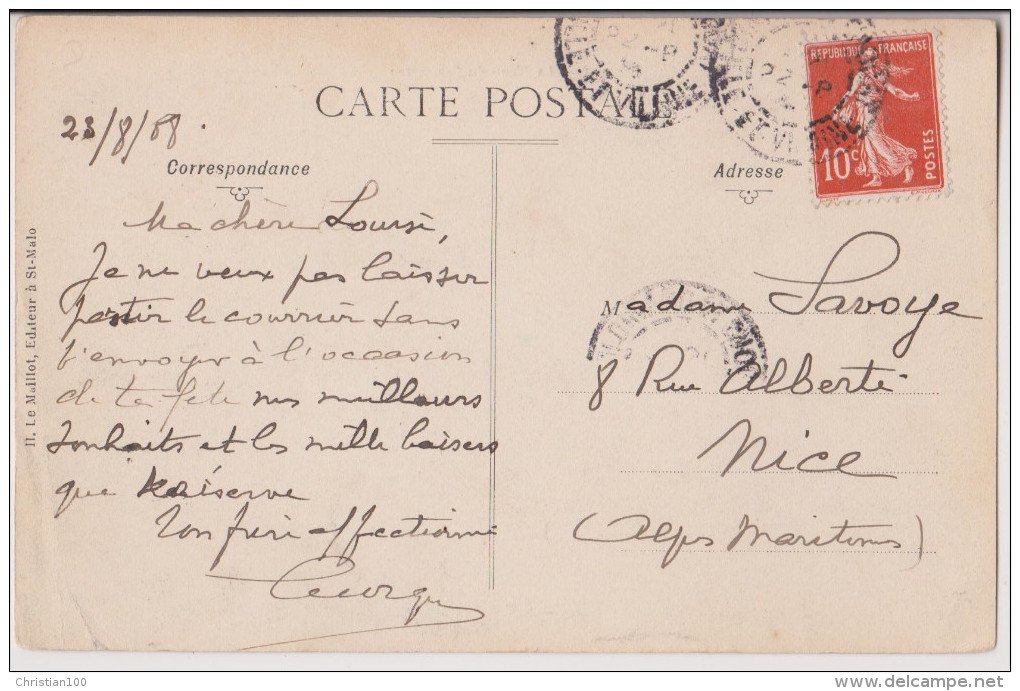 CARTE POSTALE
23/8/08.
Correspondance
Adresse
RÉPUBLIQUE FRANÇAISE
10c
POSTES
Ma chère Louise,
Je ne veux pas laisser
partir le courrier sans
t'envoyer à l'occasion
de ta fête nos meilleurs
souhaits et les mille baisers
que
Ton frère affectionné
Georges
Madame Savoye
8 Rue Alberti
Nice
(Alpes Maritimes)
H. Le Maillot, Editeur à St-Malo
Christian100
www.delcampe.net